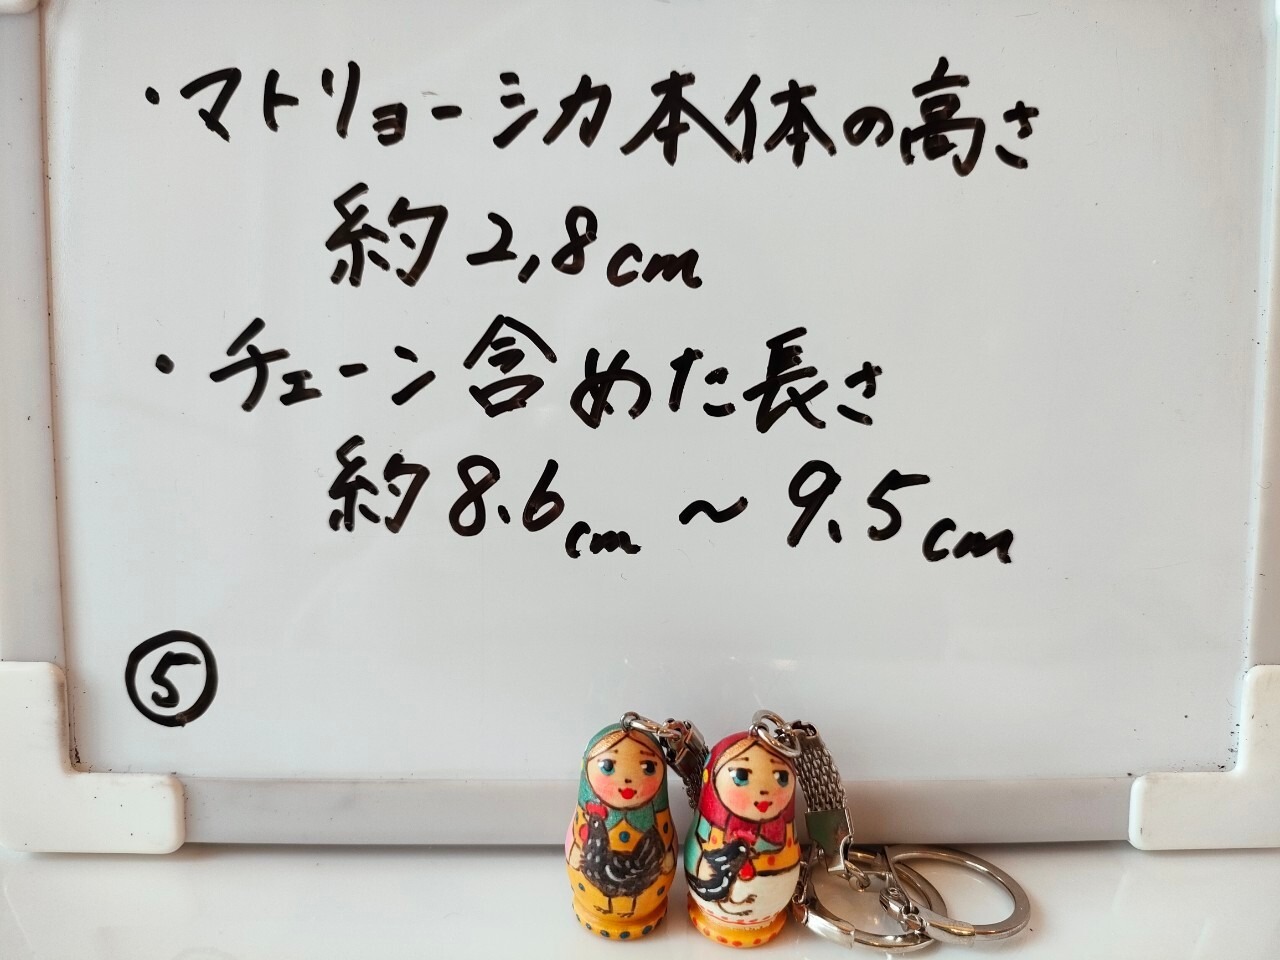 ・マトリョーシカ本体の高さ
約2,8cm
・チェーン含めた長さ
約8.6cm～9.5cm
⑤